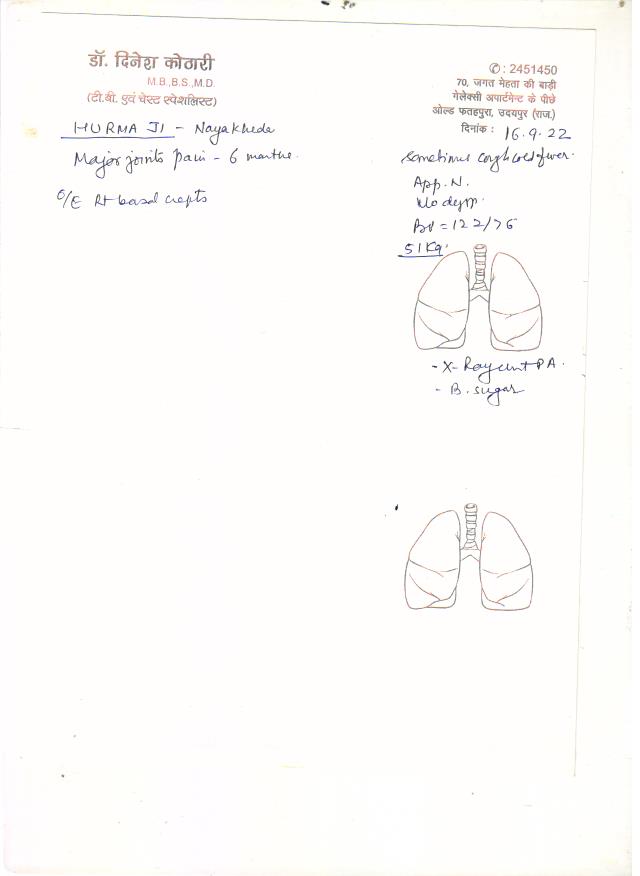 डॉ. दिनेश कोठारी
M.B.,B.S.,M.D.
(टी.बी. एवं चेस्ट स्पेशलिस्ट)
✆ : 2451450
70, जगत मेहता की बाड़ी
गेलेक्सी अपार्टमेन्ट के पीछे
ओल्ड फतहपुरा, उदयपुर (राज.)
दिनांक : 16.9.22
HURMA JI - Nayakheda
Major joints pain - 6 months.
O/E Rt basal crepts
sometimes cough cold fever.
App. N.
No
BP = 122/76
51 Kg.
- X-Ray PA.
- B. sugar